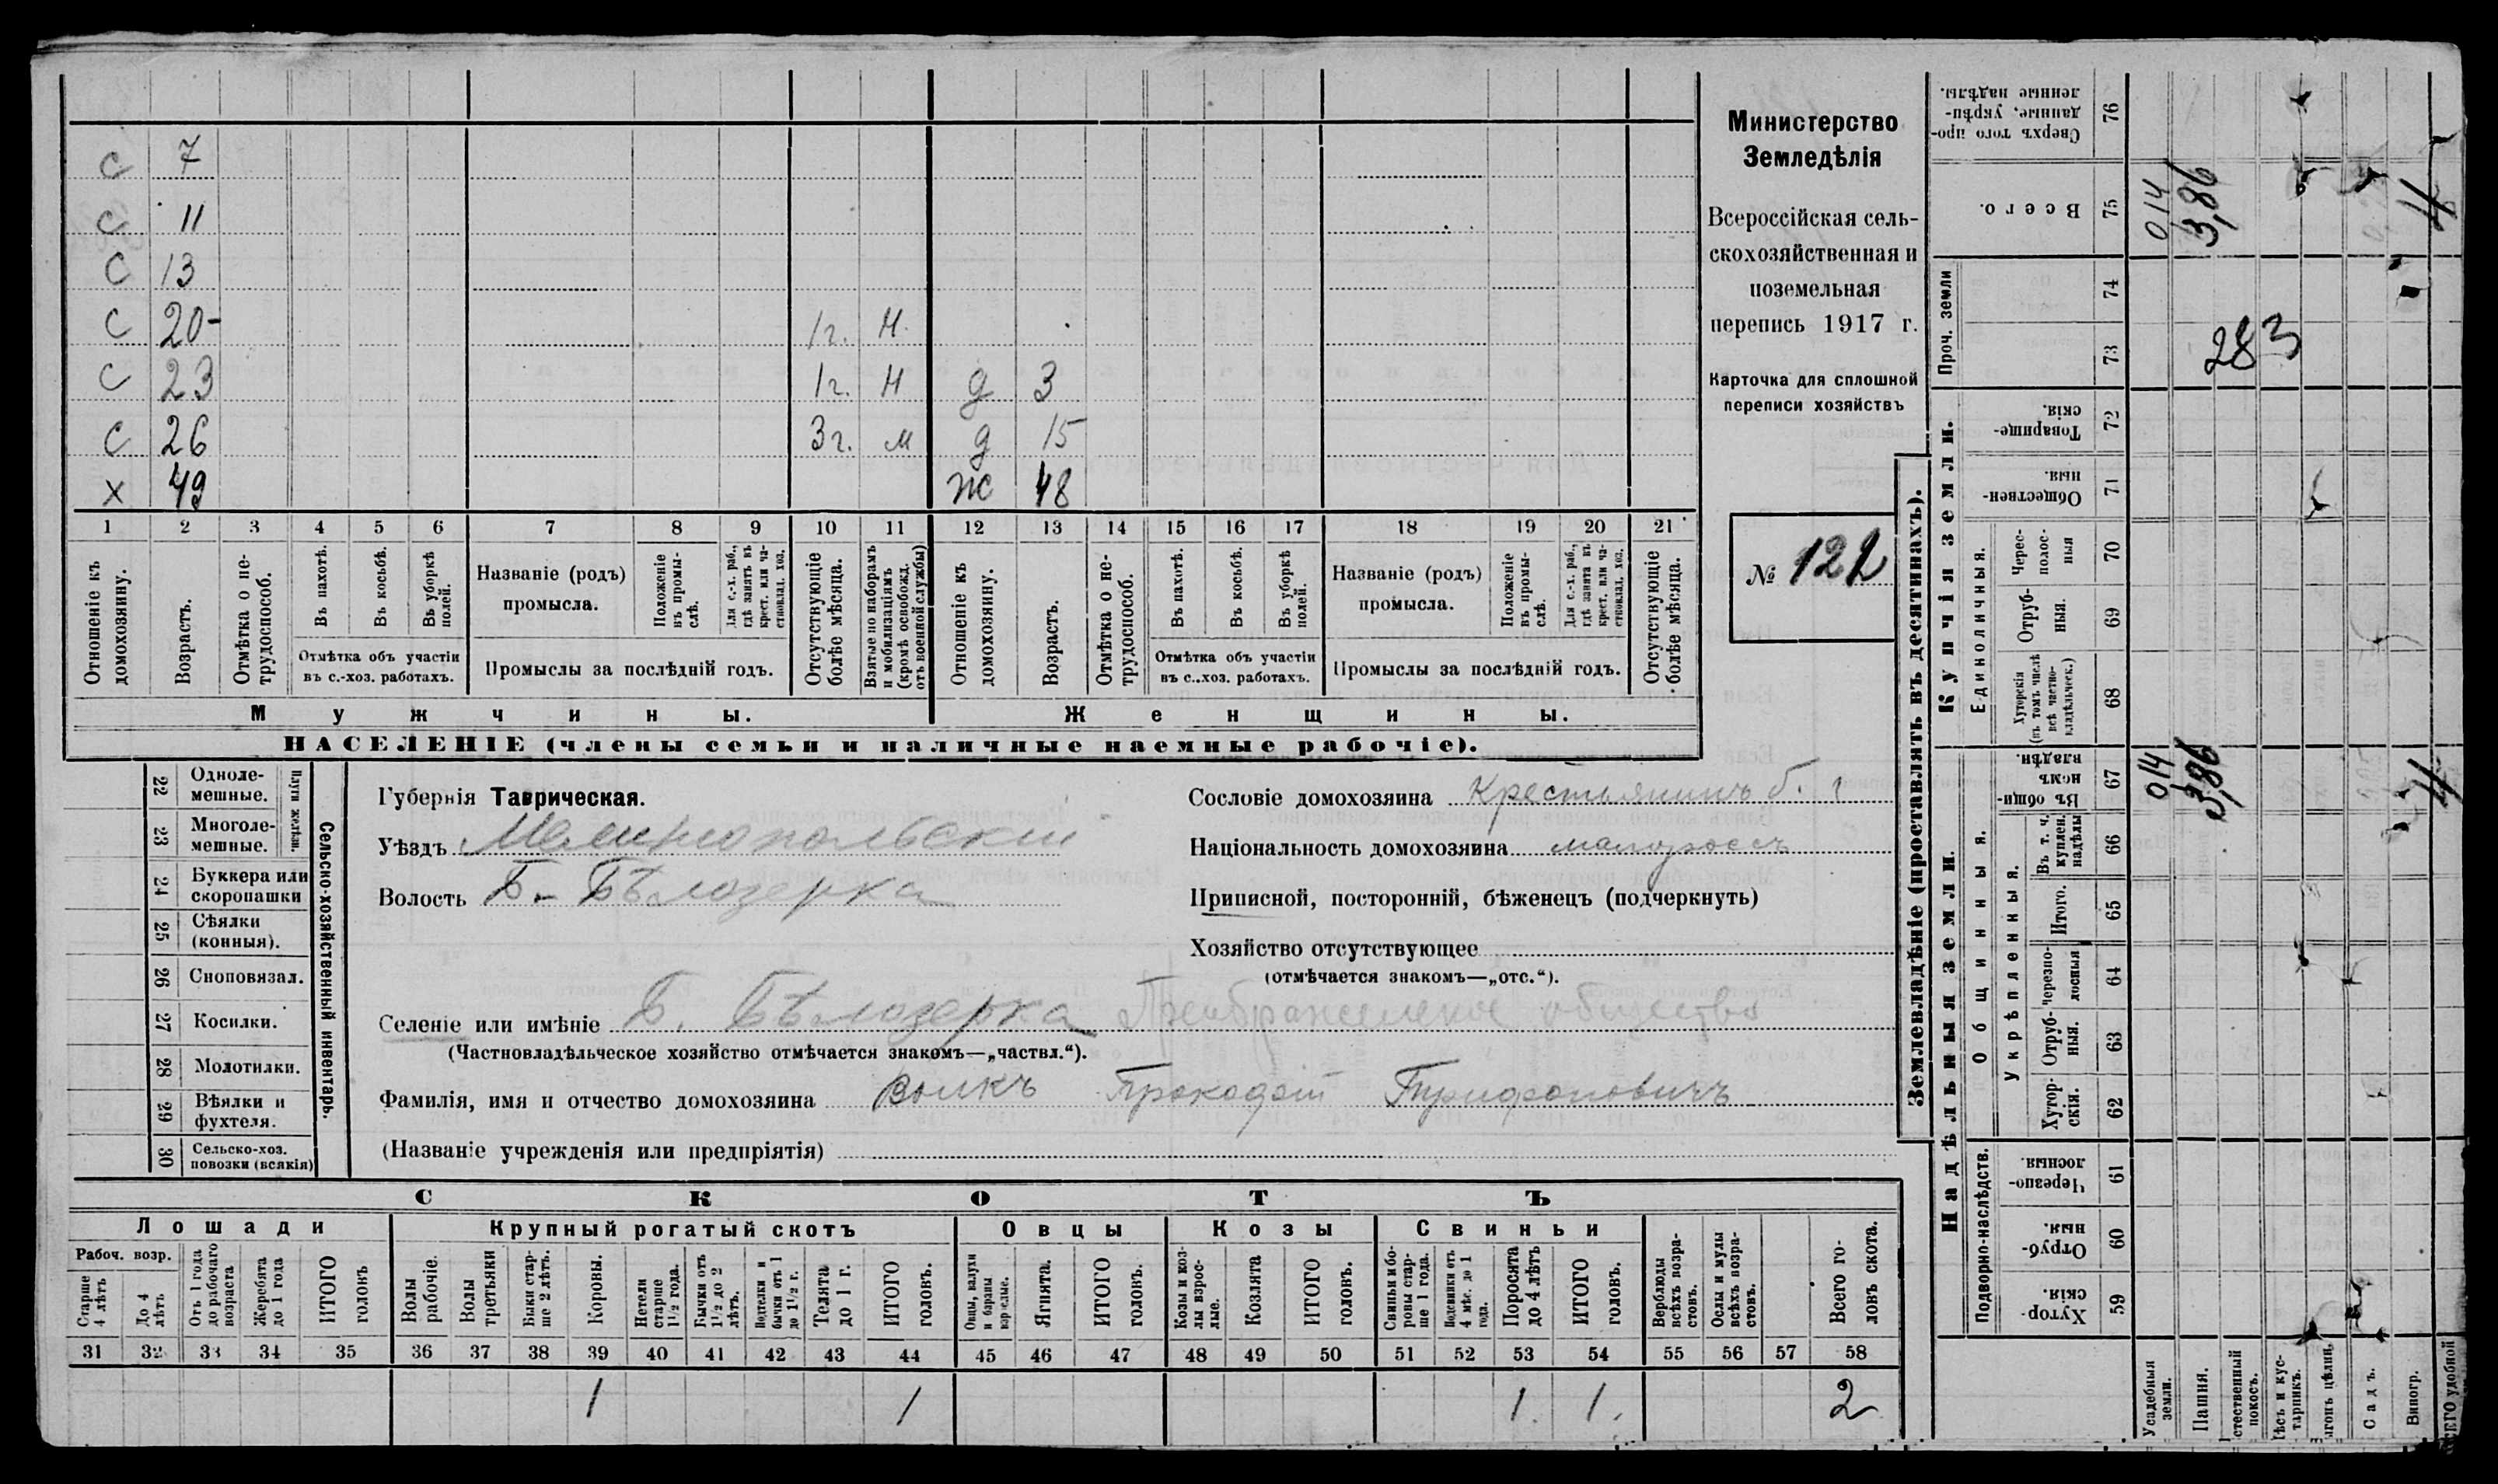 С 7
С 11
С 13
С 20- 1г. Н.
С 23 1г. Н д 3
С 26 3г. м д 15
Х 49 Ж 48
1 2 3 4 5 6 7 8 9 10 11 12 13 14 15 16 17 18 19 20 21
Отношеніе къ домохозяину.
Возрастъ.
Отмѣтка о не-трудоспособ.
Въ пахотѣ.
Въ косьбѣ.
Въ уборкѣ полей.
Отмѣтка объ участіи
въ с.-хоз. работахъ.
Названіе (родъ)
промысла.
Положеніе въ промы-слѣ.
Для с.-х. раб., гдѣ занятъ въ крест. или ча-стновлад. хоз.
Промыслы за послѣдній годъ.
Отсутствующіе болѣе мѣсяца.
Взятые по наборамъ и мобилизаціямъ (кромѣ освобожд. отъ военной службы)
Отношеніе къ домохозяину.
Возрастъ.
Отмѣтка о не-трудоспособ.
Въ пахотѣ.
Въ косьбѣ.
Въ уборкѣ полей.
Отмѣтка объ участіи
въ с.-хоз. работахъ.
Названіе (родъ)
промысла.
Положеніе въ промы-слѣ.
Для с.-х. раб., гдѣ занята въ крест. или ча-стновлад. хоз.
Промыслы за послѣдній годъ.
Отсутствующіе болѣе мѣсяца.
Мужчины. Женщины.
НАСЕЛЕНІЕ (члены семьи и наличные наемные рабочіе).
Министерство
Земледѣлія
Всероссійская сель-
скохозяйственная и
поземельная
перепись 1917 г.
Карточка для сплошной
переписи хозяйствъ
№ 122
Сельско-хозяйственный инвентарь.
Плуги желѣзн.
22 Одноле-
мешные.
23 Многоле-
мешные.
24 Буккера или
скоропашки
25 Сѣялки
(конныя).
26 Сноповязал.
27 Косилки.
28 Молотилки.
29 Вѣялки и
фухтеля.
30 Сельско-хоз.
повозки (всякія)
Губернія Таврическая.
Уѣздъ Мелитопольскій
Волость Б.- Бѣлозерка
Сословіе домохозяина Крестьянинъ б. г
Національность домохозяина малороссъ
Приписной, посторонній, бѣженецъ (подчеркнуть)
Хозяйство отсутствующее
(отмѣчается знакомъ—„отс.“).
Селеніе или имѣніе Б. Бѣлозерка Преображенское общество
(Частновладѣльческое хозяйство отмѣчается знакомъ—„частвл.“).
Фамилія, имя и отчество домохозяина Волкъ Прокофій Трифоновичъ
(Названіе учрежденія или предпріятія)
СКОТЪ
Лошади Крупный рогатый скотъ Овцы Козы Свиньи
Рабоч. возр.
Старше 4 лѣтъ
До 4 лѣтъ
Отъ 1 года до рабочаго возраста
Жеребята до 1 года
ИТОГО головъ
Волы рабочіе.
Волы третьяки
Быки стар-ше 2 лѣтъ.
Коровы.
Нетели старше 1½ года.
Бычки отъ 1½ до 2 лѣтъ.
Подтелки и бычки отъ 1 до 1½ г.
Телята до 1 г.
ИТОГО головъ.
Овцы, валухи и бараны взрослые.
Ягнята.
ИТОГО головъ.
Козы и коз-лы взрос-лые.
Козлята
ИТОГО головъ.
Свиньи и бо-ровы стар-ше 1 года.
Подсвинки отъ 4 мѣс. до 1 года.
Поросята до 4 лѣтъ
ИТОГО головъ.
Верблюды всѣхъ возра-стовъ.
Ослы и мулы всѣхъ возра-стовъ.
Всего го-ловъ скота.
31 32 33 34 35 36 37 38 39 40 41 42 43 44 45 46 47 48 49 50 51 52 53 54 55 56 57 58
1 1 1. 1. 2
Землевладѣніе (проставлять въ десятинахъ).
Купчія земли.
Надѣльныя земли.
Сверхъ того про-данные, укрѣп-ленные надѣлы. 76
Всего. 75 014 3,86 4
Проч. земли 74 73
283
Товарище-скія. 72
Обществен-ныя. 71
Единоличныя.
Черес-полос-ныя 70
Отруб-ныя. 69
Хуторскія (въ томъ числѣ всѣ частно-владѣльческ.) 68
Общинныя.
Въ общин-номъ владѣн. 67 014 3,86 4
Укрѣпленныя.
Въ т. ч. куплен. надѣлы 66
Итого. 65
Черезпо-лосныя 64
Отруб-ныя. 63
Хутор-скія. 62
Подворно-наслѣдств.
Черезпо-лосныя. 61
Отруб-ныя. 60
Хутор-скія. 59
Усадебныя земли.
Пашня.
покосъ.
Садъ.
Виногр.